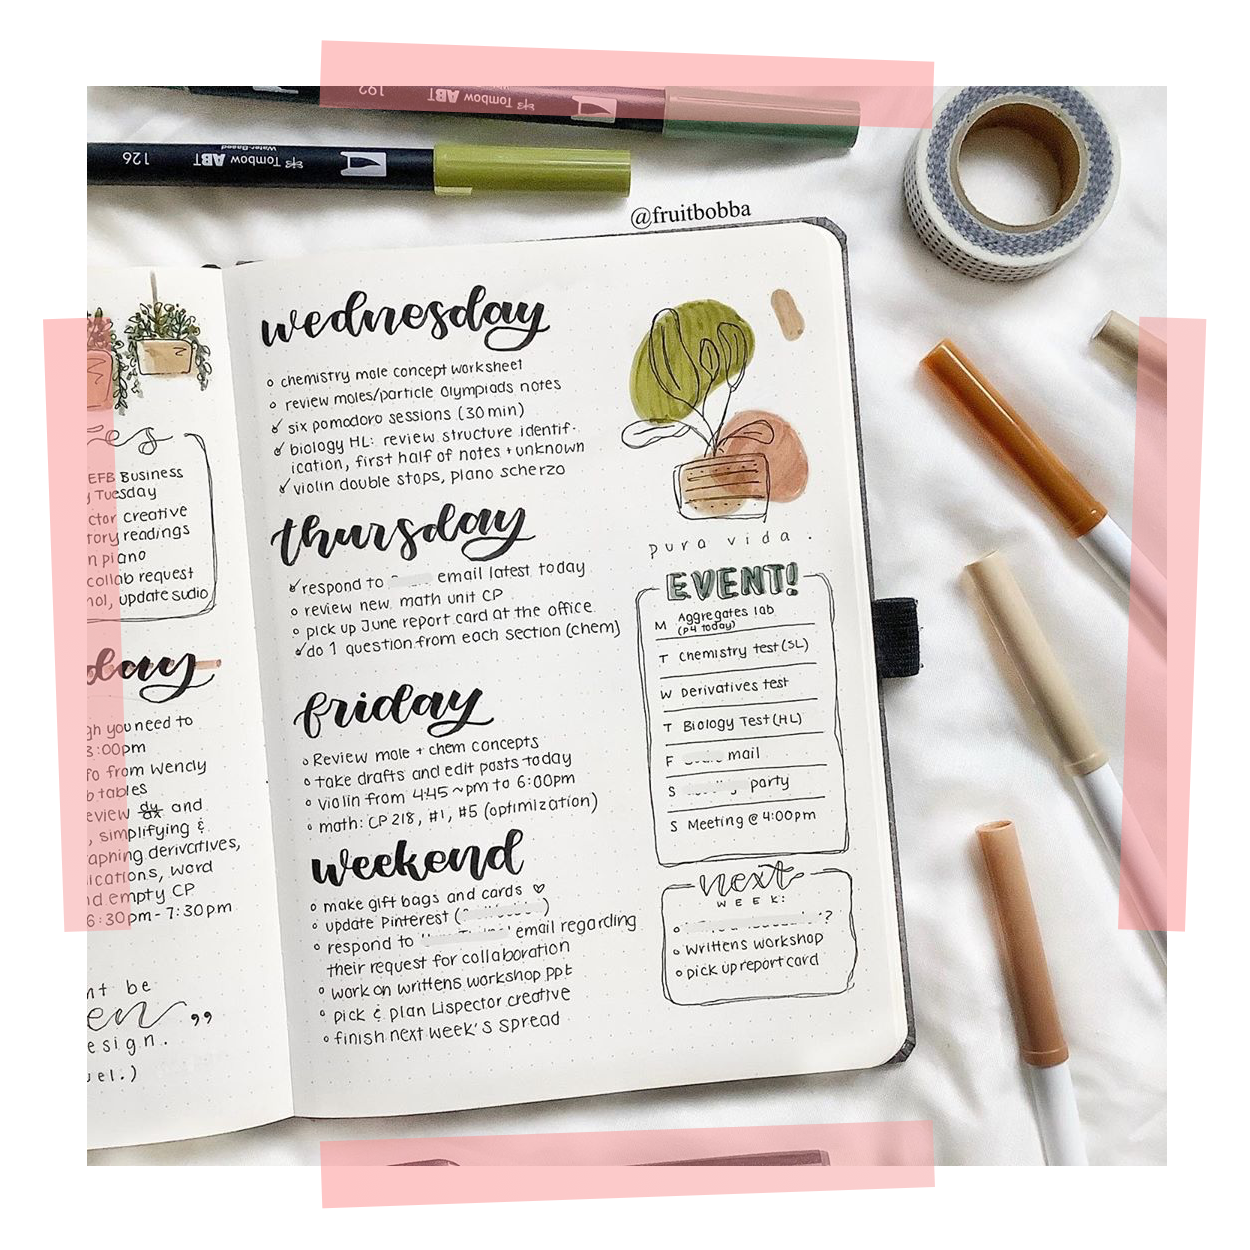 192 Tombow ABT
126 Tombow ABT
Water-Based
@fruitbobba
EFB Business
Tuesday
ctor creative
tory readings
n piano
collab request
nol, update sudio
day
gh you need to
3:00pm
fo from Wendy
b tables
eview dy and
dx
, simplifying &
aphing derivatives,
ications, word
nd empty CP
6:30pm-7:30pm
nt be
en"
esign.
uel.)
wednesday
chemistry mole concept worksheet
review moles/particle Olympiads notes
six pomodoro sessions (30 min)
biology HL: review structure identif-
ication, first half of notes + unknown
violin double stops, piano scherzo
thursday
respond to email latest today
review new math unit CP
pick up June report card at the office
do 1 question from each section (chem)
friday
Review mole + chem concepts
take drafts and edit posts today
violin from 4:45 ~pm to 6:00pm
math: CP 218, #1, #5 (optimization)
weekend
make gift bags and cards ♡
update Pinterest ( )
respond to email regarding
their request for collaboration
work on writtens workshop ppt
pick & plan Lispector creative
finish next week's spread
pura vida.
EVENT!
M Aggregates lab
(P4 today)
T Chemistry test (SL)
W Derivatives test
T Biology Test (HL)
F mail
S party
S Meeting @ 4:00pm
next
WEEK:
?
writtens workshop
pick up report card